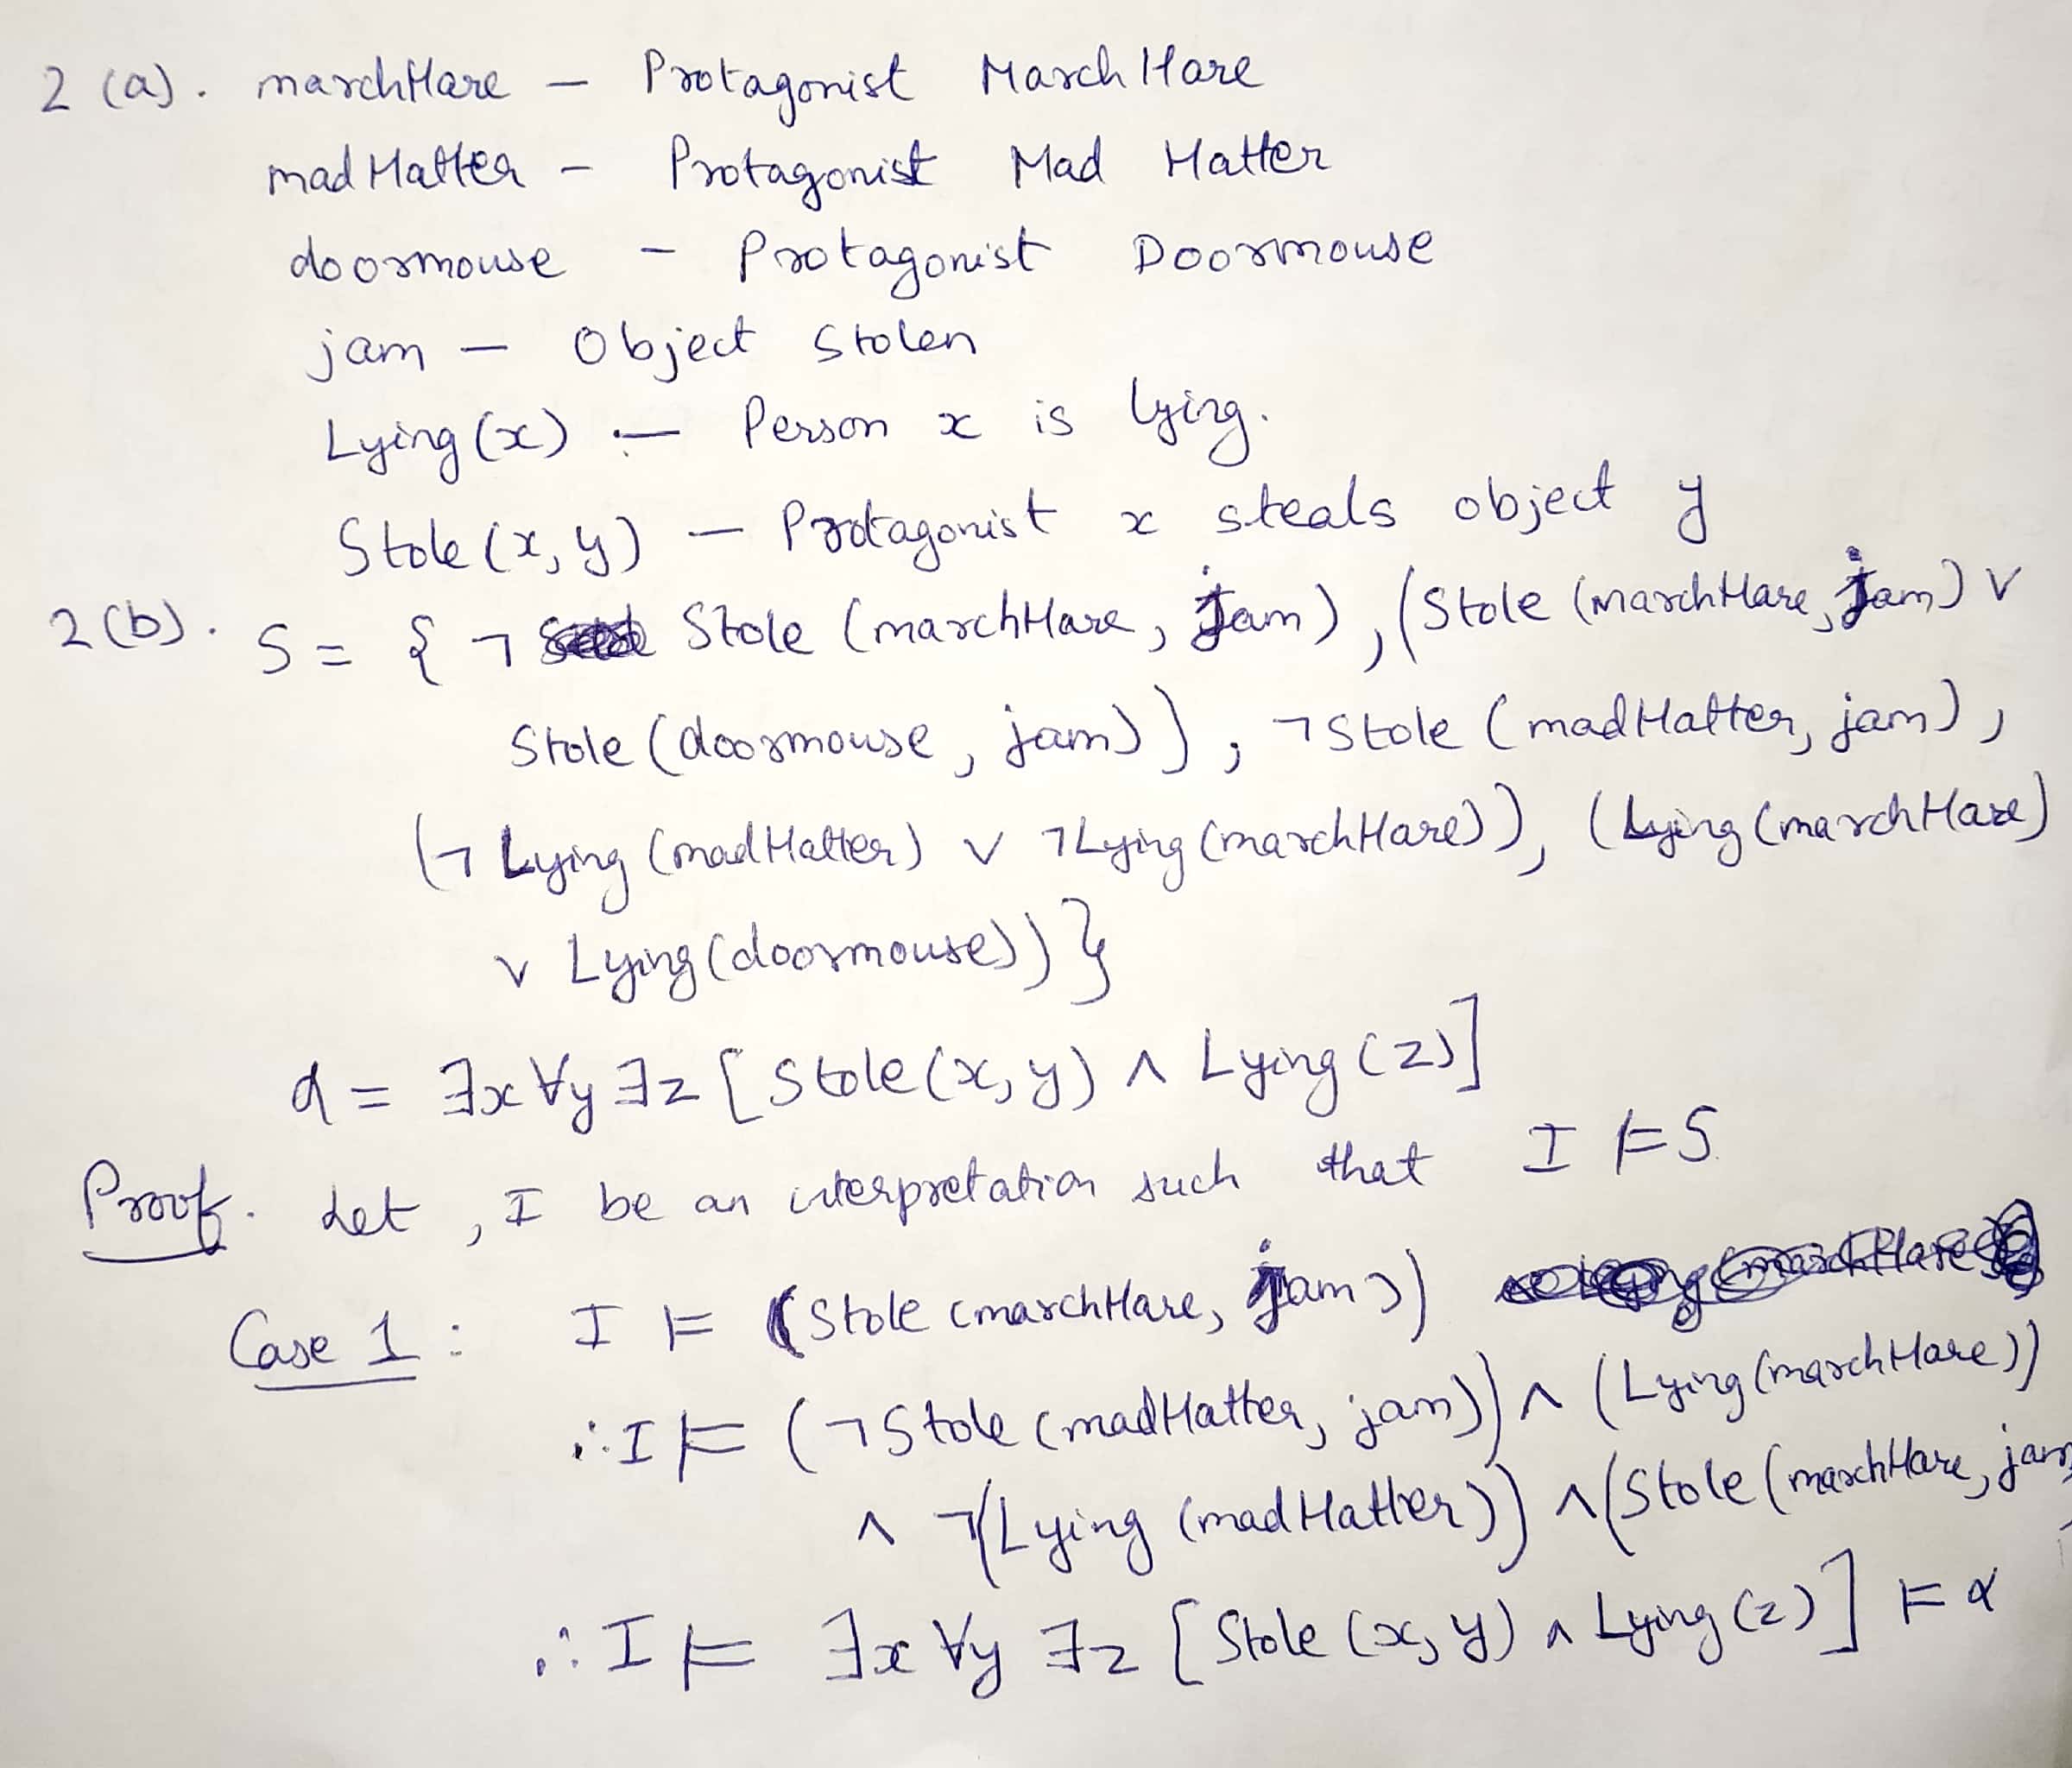 2 (a). marchHare – Protagonist March Hare
madHatter – Protagonist Mad Hatter
doormouse – Protagonist Doormouse
jam – Object Stolen
Lying(x) – Person x is lying.
Stole(x, y) – Protagonist x steals object y
2(b). S = { ¬ Stole (marchHare, jam), (Stole (marchHare, jam) ∨
Stole (doormouse, jam)), ¬Stole (madHatter, jam),
(¬ Lying (madHatter) ∨ ¬Lying (marchHare)), (Lying (marchHare)
∨ Lying (doormouse)) }
α = ∃x ∀y ∃z [Stole(x, y) ∧ Lying(z)]
Proof. Let, I be an interpretation such that I ⊨ S
Case 1 : I ⊨ (Stole (marchHare, jam))
∴ I ⊨ (¬Stole (madHatter, jam)) ∧ (Lying (marchHare))
∧ ¬(Lying (madHatter)) ∧ (Stole (marchHare, jam
∴ I ⊨ ∃x ∀y ∃z [Stole (x, y) ∧ Lying (z)] ⊨ α